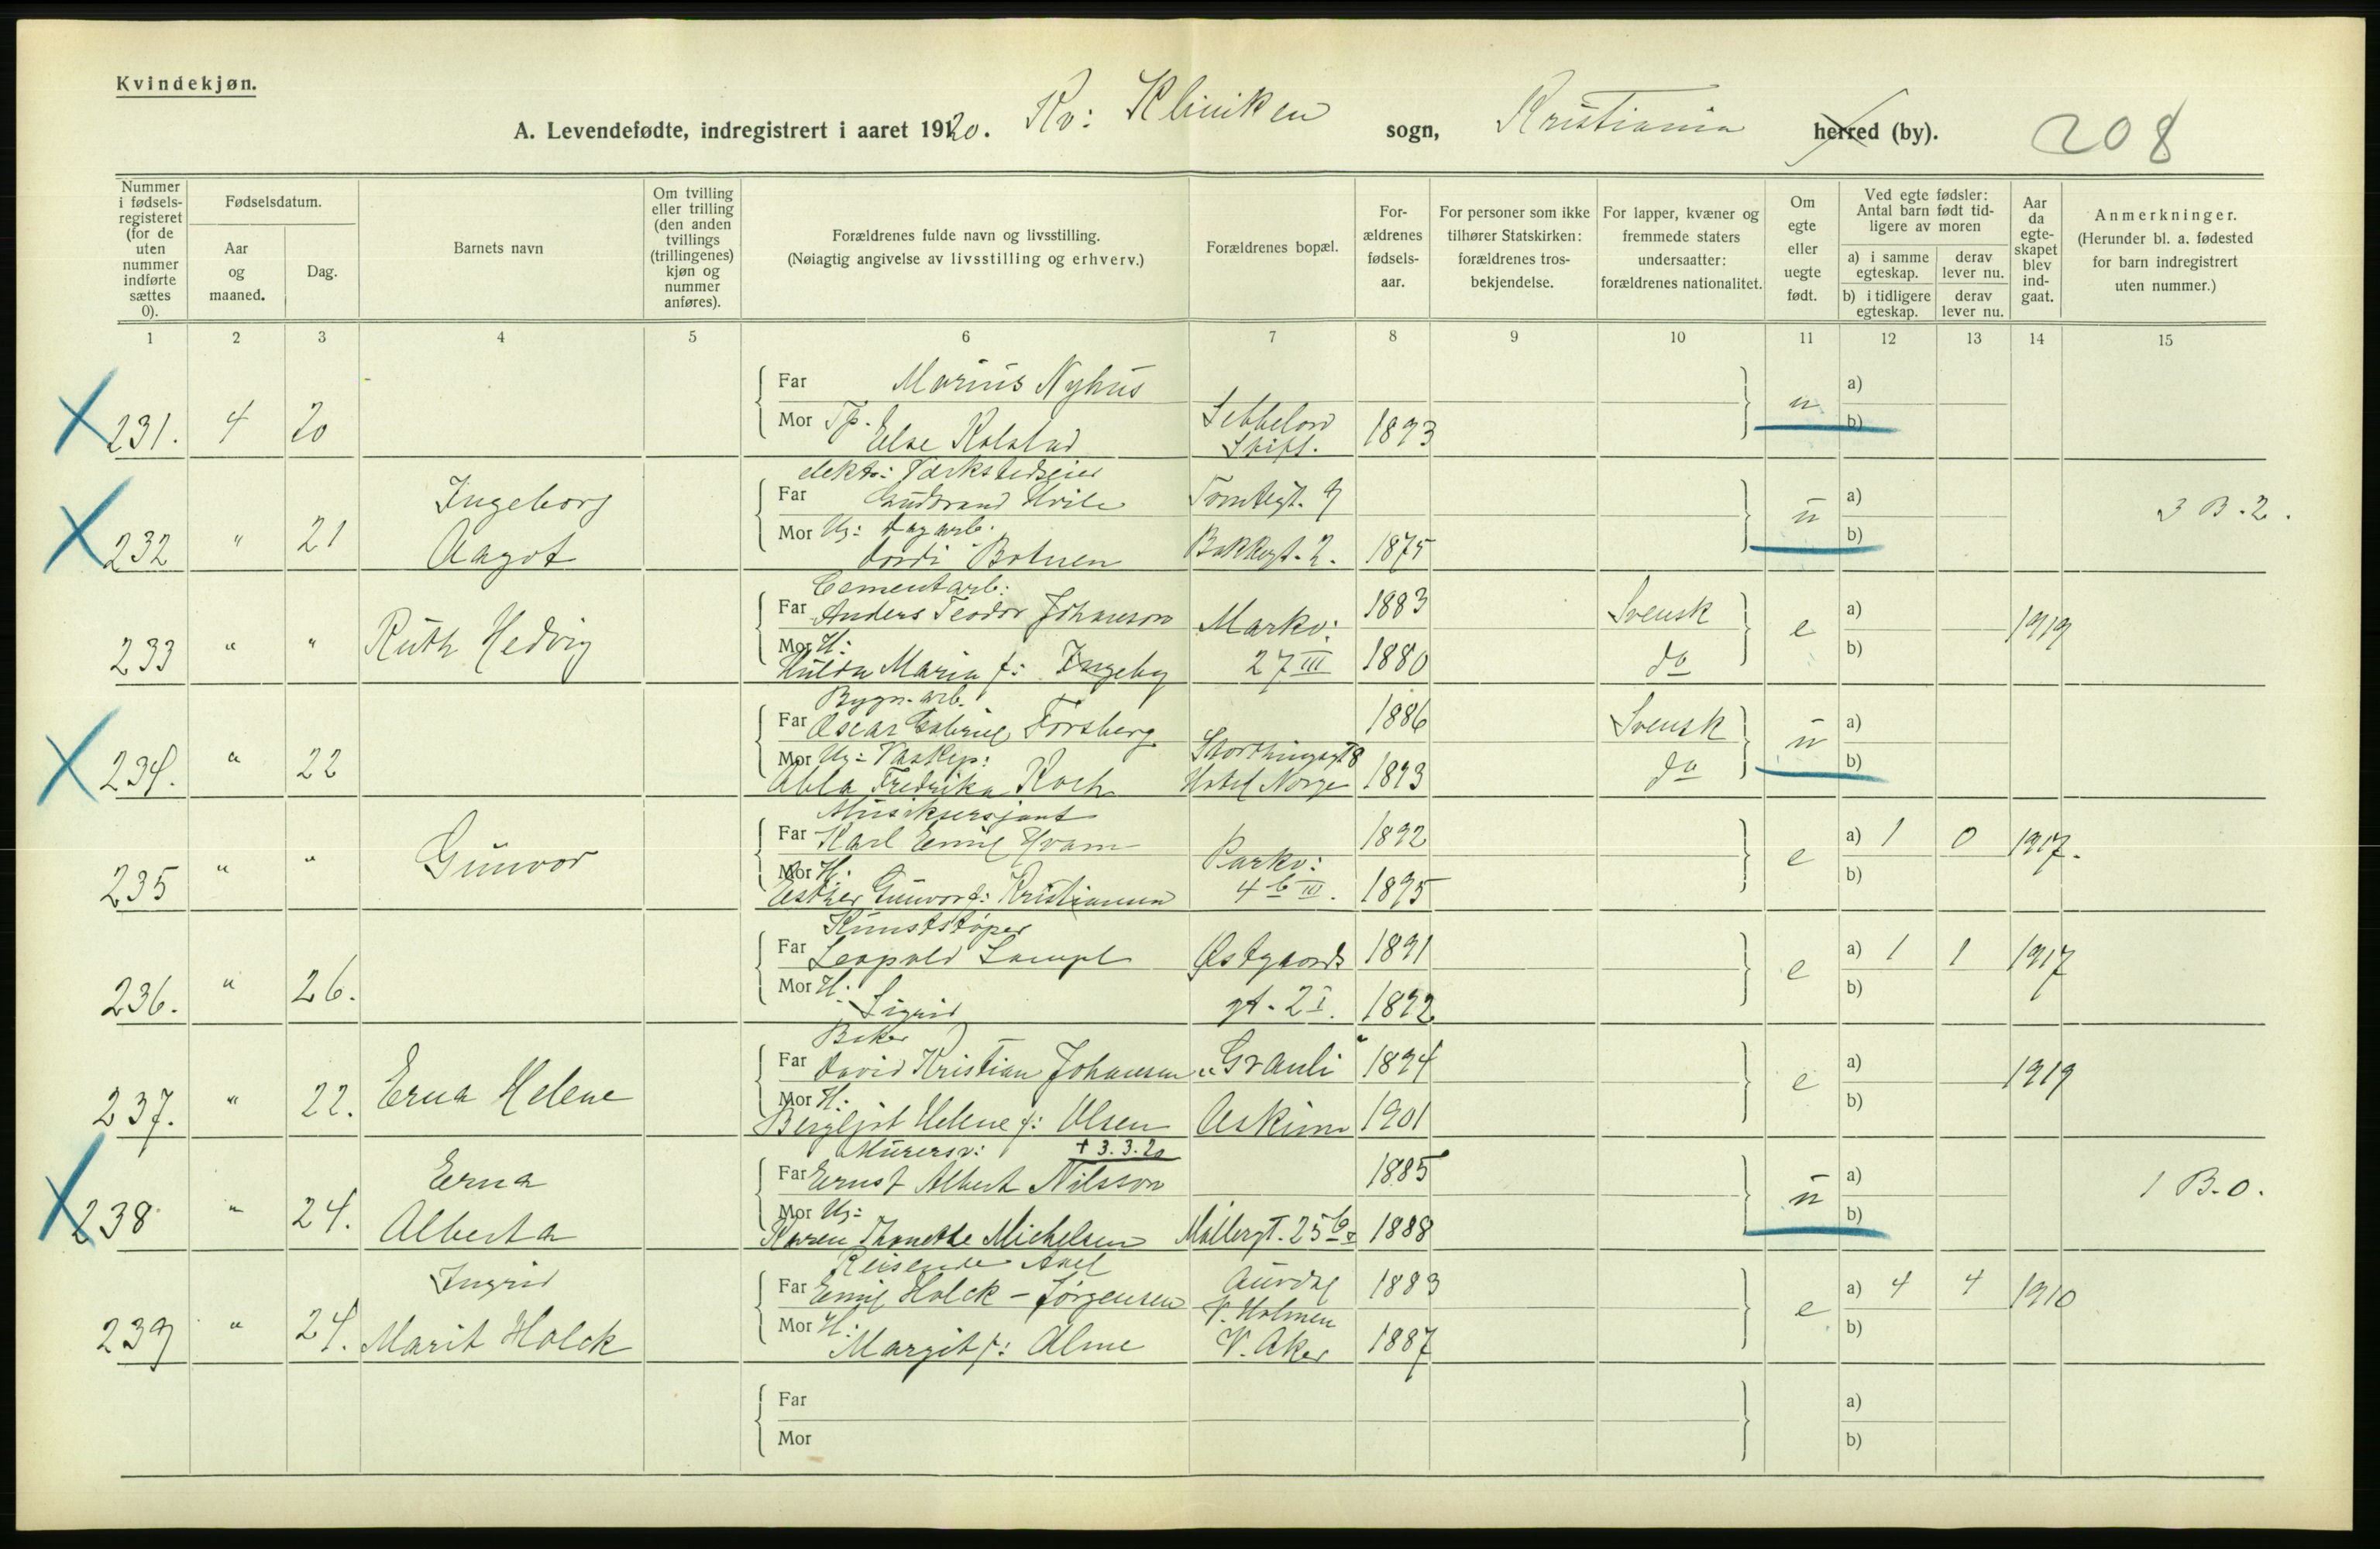 Kvindekjøn.
A. Levendefødte, indregistrert i aaret 1920. Kv: Kliniken sogn, Kristiania herred (by). 208
Nummer i fødsels-registeret (for de uten nummer indførte sættes 0).
Fødselsdatum.
Aar og maaned.
Dag.
Barnets navn
Om tvilling eller trilling (den anden tvillings (trillingenes) kjøn og nummer anføres).
Forældrenes fulde navn og livsstilling.
(Nøiagtig angivelse av livsstilling og erhverv.)
Forældrenes bopæl.
For-ældrenes fødsels-aar.
For personer som ikke tilhører Statskirken: forældrenes tros-bekjendelse.
For lapper, kvæner og fremmede staters undersaatter: forældrenes nationalitet.
Om egte eller uegte født.
Ved egte fødsler: Antal barn født tid-ligere av moren
a) i samme egteskap.
derav lever nu.
b) i tidligere egteskap.
derav lever nu.
Aar da egte-skapet blev ind-gaat.
Anmerkninger.
(Herunder bl. a. fødested for barn indregistrert uten nummer.)
1 2 3 4 5 6 7 8 9 10 11 12 13 14 15
Far Marius Nyhus a)
231. 4 20 Mor Tp. Else Kolstad Sebbelow Stift. 1893 u b)
elektr: Værkstedseier
Ingeborg Far Gudbrand Hvile Tomtegt. 9 a) 3 B. 2.
232 " 21 Aagot Mor Ug: Fagarb. Tordi Botnen Bakkegt. 2. 1875 u b)
Cementarb:
Far Anders Teodor Johanson Markv: 1883 Svensk a)
233 " " Ruth Hedvig Mor H: Hulda Maria f: Ingeby 27 III 1880 do e b) 1919
Bygn. arb.
Far Oscar Gabriel Forsberg 1886 Svensk a)
234. " 22 Mor Ug: Abla Fredrika Koch Storthingsgt 8 Hotel Norge 1893 do u b)
Musiksersjant
Far Karl Emil Hvam Parkv: 1892 a) 1 0 1917.
235 " " Gunvor Mor H: Esther Gunvor f: Kristiansen 4 b III. 1895 e b)
Kunststøper
Far Leopold Lampl Østgaards 1891 a) 1 1 1917
236. " 26. Mor H: Sigrid gt. 2 I. 1892 e b)
Baker
Far David Kristian Johansen "Grauli" 1894 a) 1919
237. " 22. Erna Helene Mor H: Bergljot Helene f: Olsen Askim 1901 e b)
Murersv: † 3.3.20
Erna Far Ernst Albert Nilsson 1885 a) 1 B. 0.
238 " 24. Alberta Mor Ug: Karen Thonette Michelsen Møllergt. 25 b 1888 u b)
Reisende Axel
Ingrid Far Emil Holck-Jørgensen Aurdal 1883 a) 4 4 1910
239 " 24. Marit Holck Mor H: Margit f: Alme V. Holmen V. Aker 1887 e b)
Far a)
Mor b)